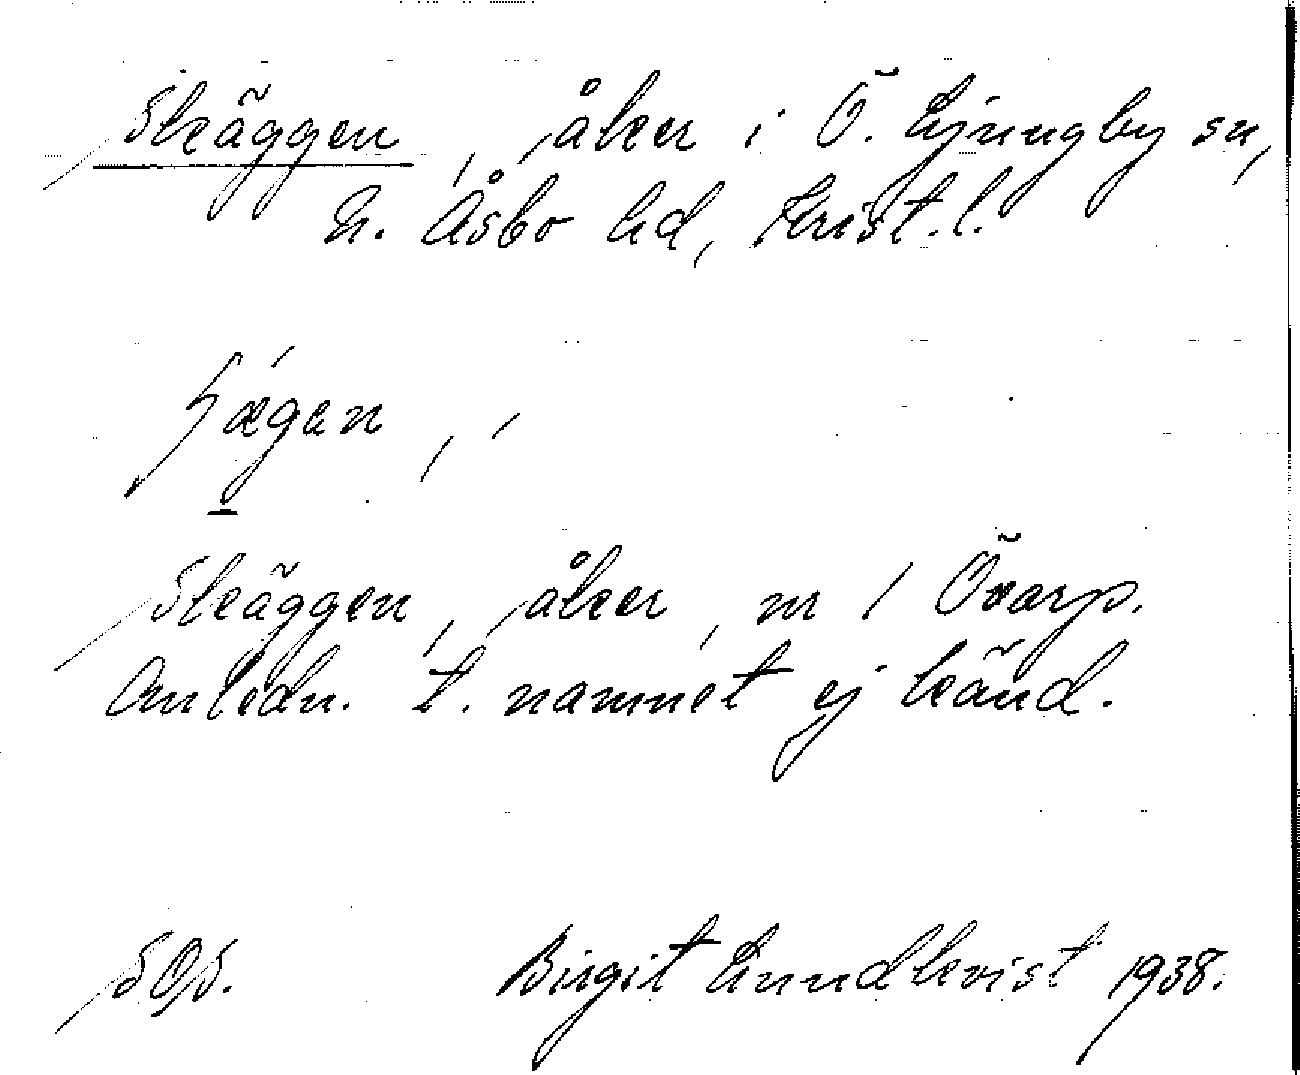 Skäggen, åker i Ö. Ljungby sn,
N. Åsbo hd, Krist. l.
Skäggen, åker, nr 1 Övarp.
Anledn. t. namnet ej känd.
SOS. Birgit Lundkvist 1938.